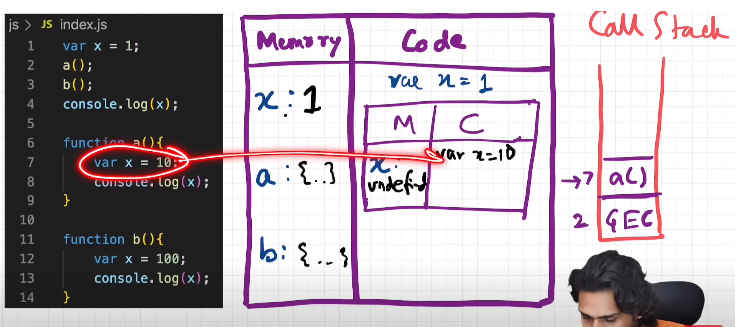 js > JS index.js
1 var x = 1;
2 a();
3 b();
4 console.log(x);
5
6 function a(){
7 var x = 10;
8 console.log(x);
9 }
10
11 function b(){
12 var x = 100;
13 console.log(x);
14 }
Memory
Code
x : 1
a : {..}
b : { ... }
var x = 1
M
C
x :
undefind
var x=10
Call Stack
→7 a()
2 GEC